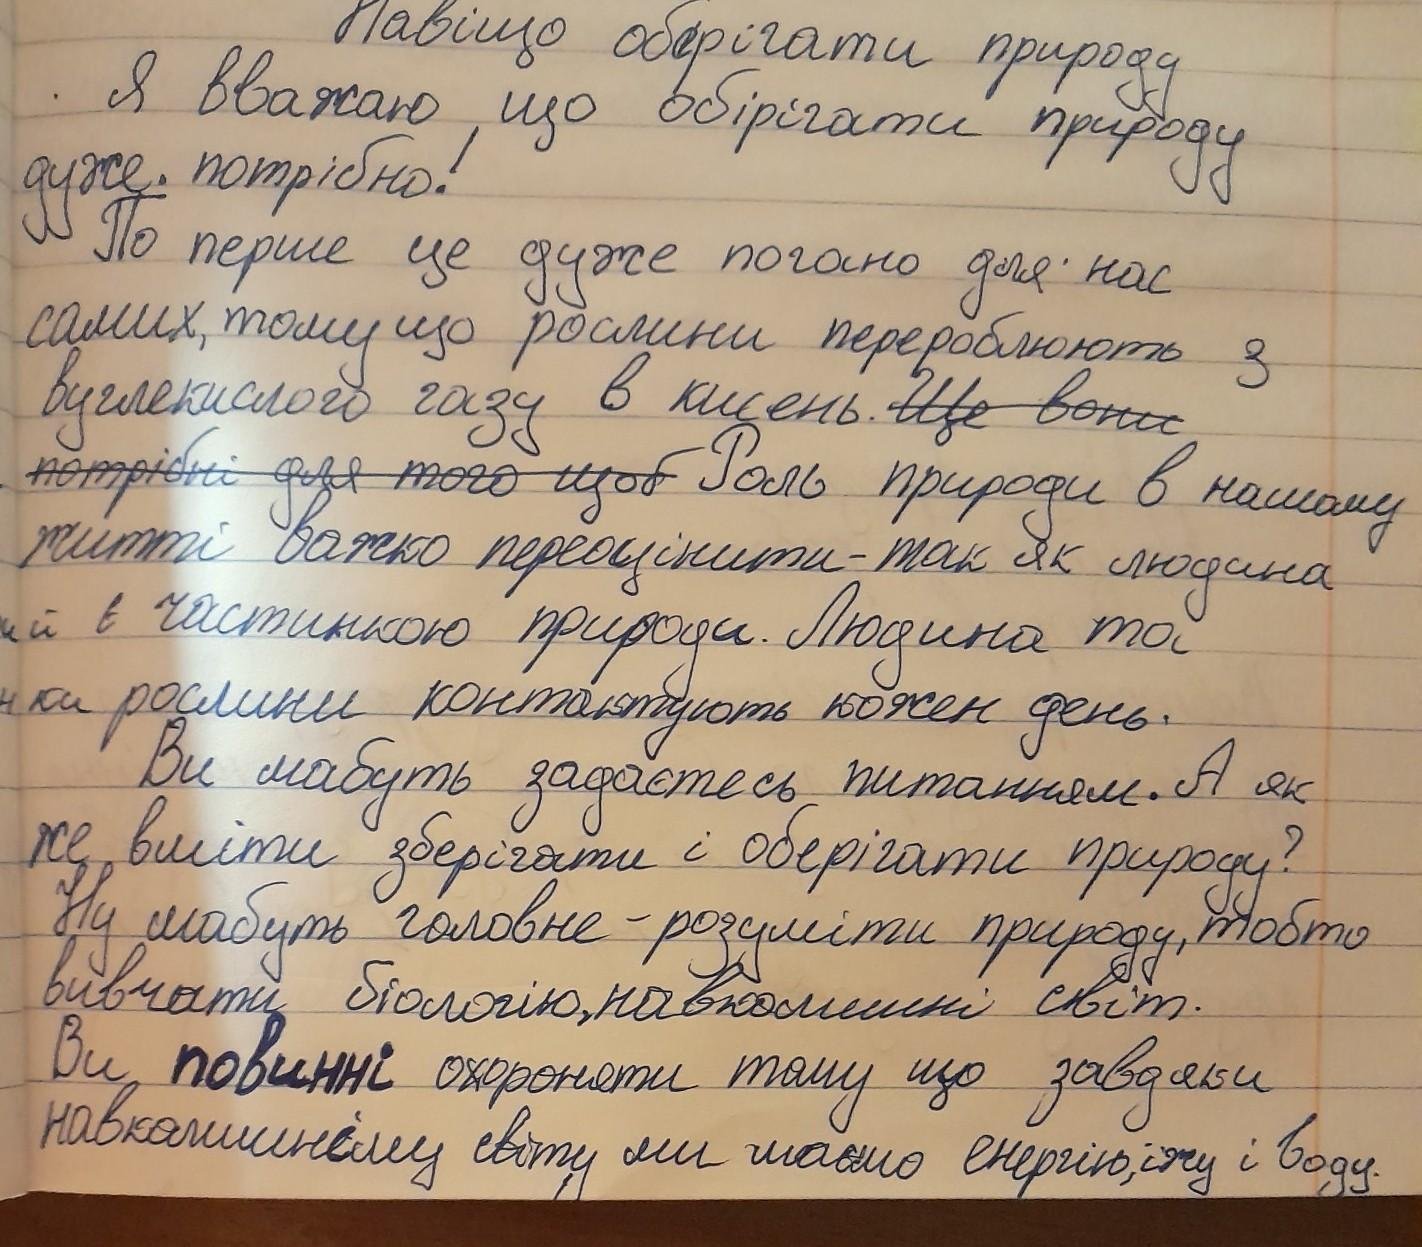 Навіщо оберігати природу
Я вважаю, що обірігати природу
дуже. потрібно!
По перше це дуже погано для нас
самих, тому що рослини перероблюють з
вуглекислого газу в кисень. Ще вони
потрібні для того щоб Роль природи в нашому
житті важко переоцінити - так як людина
є частинкою природи. Людина та
рослини контактують кожен день.
Ви мабуть задаєтесь питанням. А як
же вміти зберігати і оберігати природу?
Ну мабуть головне - розуміти природу, тобто
вивчати біологію, навколишні світ.
Ви повинні охороняти тому що завдяки
навколишнєму світу ми маємо енергію, їжу і воду.